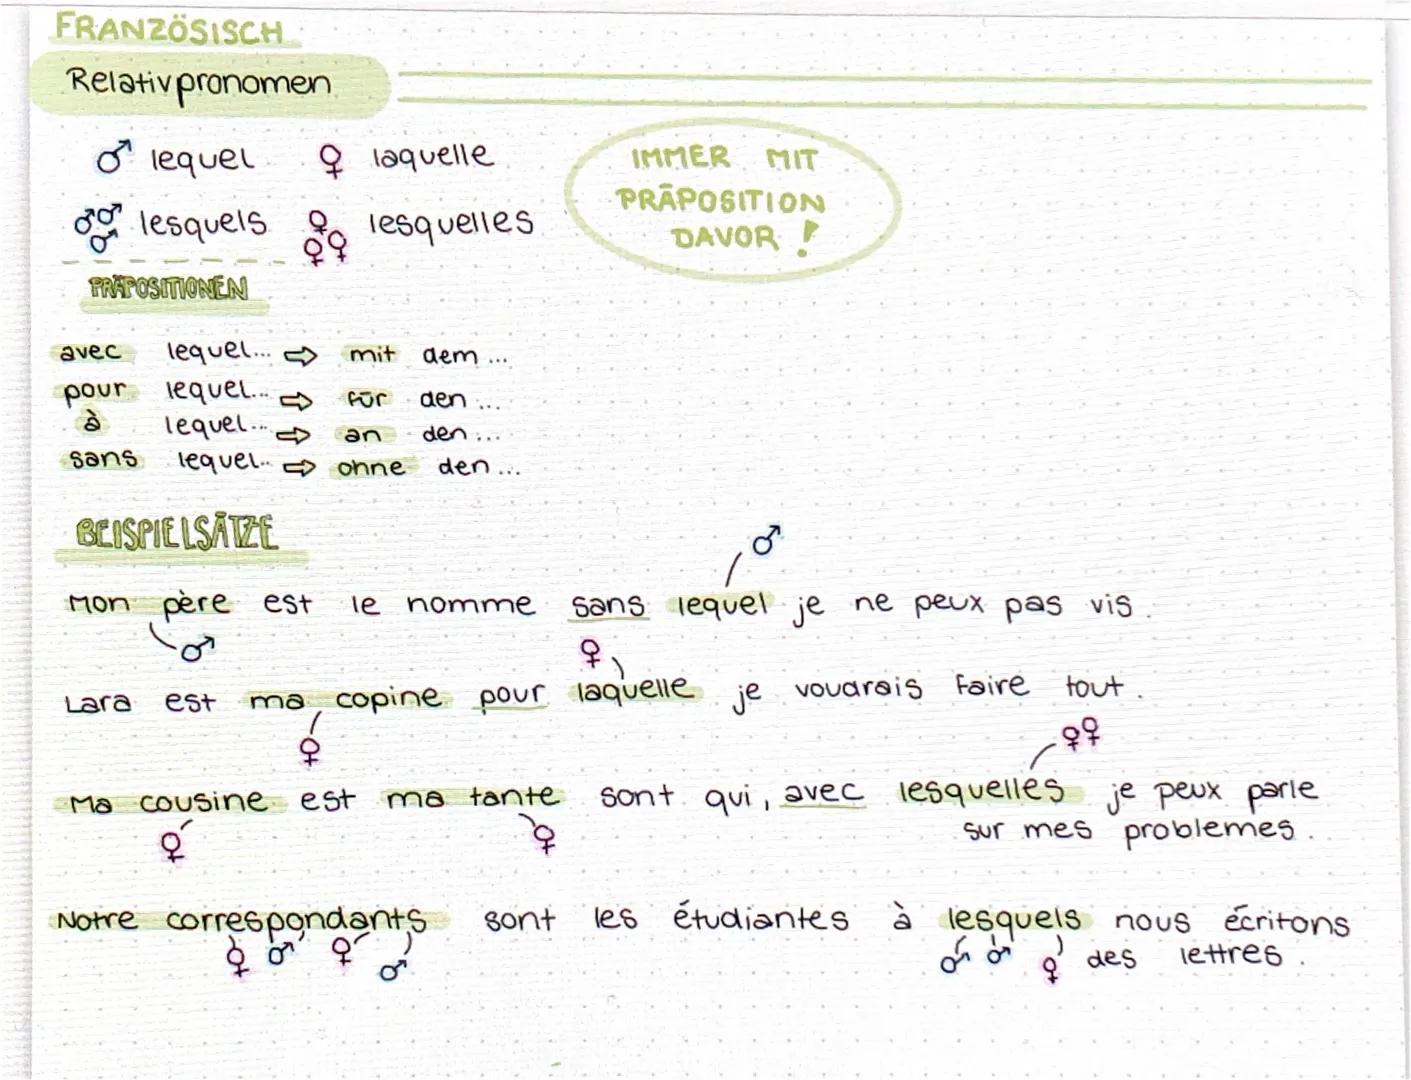 FRANZÖSISCH
Relativpronomen
♂ lequel ♀ laquelle
♂♂♂ lesquels ♀♀♀ lesquelles
IMMER MIT
PRÄPOSITION
DAVOR !
PRÄPOSITIONEN
avec lequel... ⇨ mit dem ...
pour lequel... ⇨ für den ...
à lequel... ⇨ an den ...
sans lequel.. ⇨ ohne den ...
BEISPIELSÄTZE
♂
Mon père est le nomme sans lequel je ne peux pas vis.
♂ ♀
Lara est ma copine pour laquelle je voudrais faire tout.
♀ ♀♀
Ma cousine est ma tante sont qui, avec lesquelles je peux parle
♀ ♀ sur mes problemes.
Notre correspondants sont les étudiantes à lesquels nous écritons
♀ ♂ ♀ ♂ ♂ ♂ ♀ des lettres.